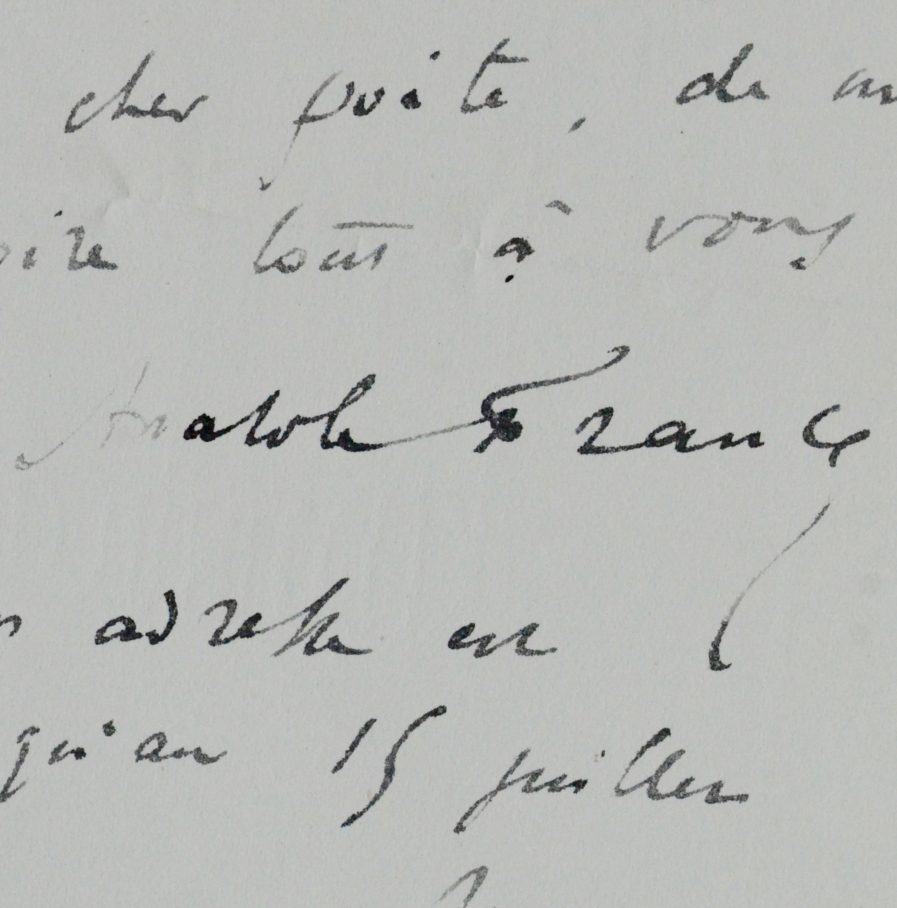 cher poëte, de
oire tout à vous
Anatole France
adresse est
qu'au 15 juillet